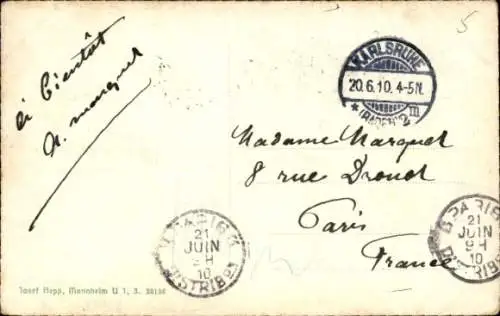 5
à bientôt
A. marquet
KARLSRUHE
20.6.10.4-5N.
* (BADEN) 2 m
Madame Marquet
8 rue Drouot
Paris
France
PARIS
21
JUIN
9H
10
DISTRIBON
PARIS
21
JUIN
9H
10
DISTRIB
Josef Hepp, Mannheim U 1, 3.